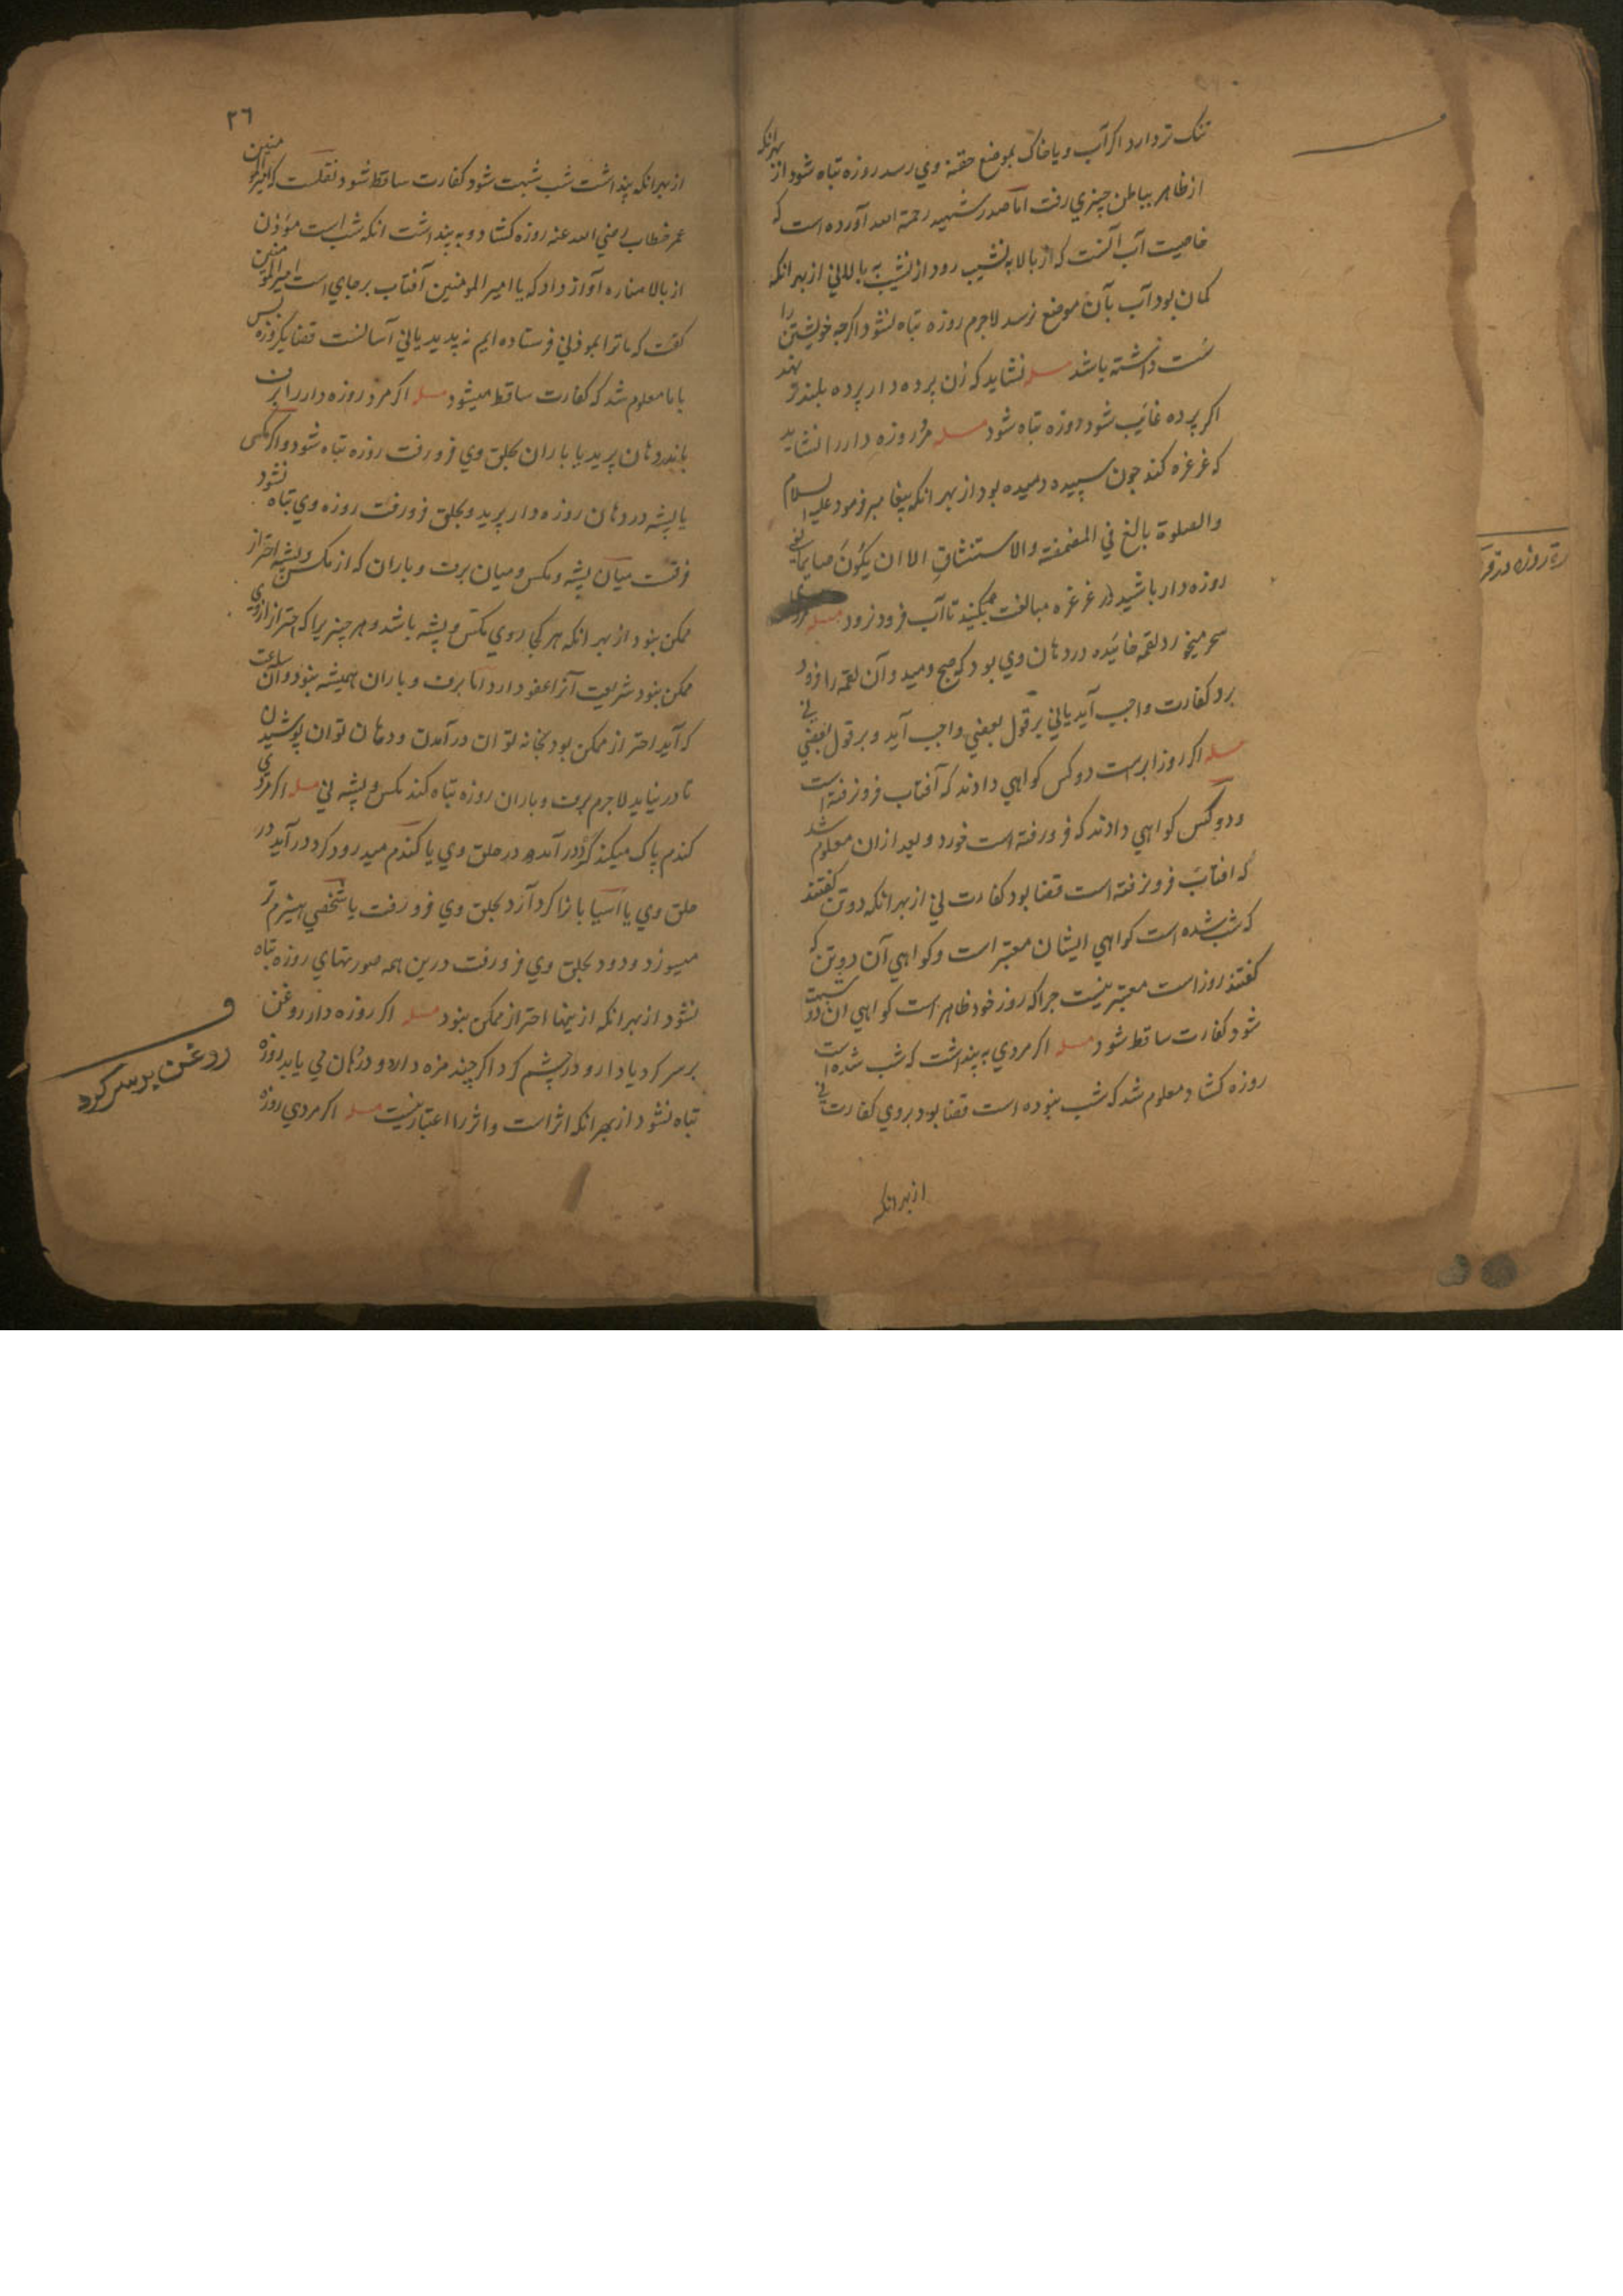 تنک تر دارد اکر آب و یا خاک بموضع حقنه وي رسد روزه تباه شود از بهر انکه
از ظاهر بباطن چیزي رفت اما صدر شهید رحمة الله آورده است که
خاصیت آب آنست که از بالا به نشیب رود از نشیب به بالا نی از بهر انکه
کمان بود آب بآن موضع نرسد لاجرم روزه تباه نشود اکرچه خویشتن را
سست داشته باشد مسله نشاید که زن پرده دار پرده بلندتر نهد
اکر پرده غایب شود روزه تباه شود مسله مر روزه دار را نشاید
که غرغره کند چون سپیده دمیده بود از بهر انکه پیغامبر فرمود علیه السلام
والصلوة بالغ في المضمضة والاستنشاق الا ان یکون صایما یعني
روزه دار باشید در غرغره مبالغت مکنید تا آب فرو نرود مسله مردي
سحر میخورد لقمه خائیده در دهان وي بود که صبح دمید و آن لقمه را فرو
برد کفارت واجب آید یا نی بر قول بعضي واجب آید و بر قول بعضي ني
مسله اکر روز ابرست دو کس کواهي دادند که آفتاب فرو نرفته است
و دو کس کواهي دادند که فرو رفته است خورد و بعد ازان معلوم شد
که افتاب فرو نرفته است قضا بود کفارت ني از بهر انکه دو تن کفتند
که شب شده است کواهي ایشان معتبر است و کواهي آن دو تن که
کفتند روز است معتبر نیست چرا که روز خود ظاهر است کواهي ان دو شبهت
شود کفارت ساقط شود مسله اکر مردي به پنداشت که شب شده است
روزه کشاد معلوم شد که شب نبوده است قضا بود بروي کفارت ني
از بهر انکه
۲۶
از بهر انکه پنداشت شب شبهت شود کفارت ساقط شود نقلست که امیر المومنین
عمر خطاب رضي الله عنه روزه کشاد و به پنداشت انکه شب است موذن
از بالا مناره آواز داد که یا امیر المومنین آفتاب برجاي است امیر المومنین
کفت که ما ترا بموذني فرستاده ایم نه پدید یاني آسانست قضا یکروزه پس
بما معلوم شد که کفارت ساقط میشود مسله اکر مرد روزه دار را برف
باندر دهان پرید یا باران بحلق وي فرو رفت روزه تباه شود و اکر مکس
یا پشه در دهان روزه دار پرید و بحلق فرو رفت روزه وي تباه نشود
فرقست میان پشه و مکس و میان برف و باران که از مکس و پشه احتراز
ممکن نبود از بهر انکه هر کجا روي مکس و پشه باشد و هر چیزیرا که احتراز از وي
ممکن نبود شریعت آنرا عفو دارد اما برف و باران همیشه نبود و آن ساعت
که آید احتراز ممکن بود بخانه توان در آمدن و دهان توان پوشیدن
تا در نیاید لاجرم برف و باران روزه تباه کند مکس و پشه ني مسله اکر مردي
کندم پاک میکند کرد در آمد در حلق وي یا کندم میدرود کرد در آید در
حلق وي یا آسیا بانرا کرد آرد بحلق وي فرو رفت یا شخصي هیزم تر
میسوزد و دود بحلق وي فرو رفت درین همه صورتهاي روزه تباه
نشود از بهر انکه ازینها احتراز ممکن نبود مسله اکر روزه دار روغن
بر سر کرد یا دارو در چشم کرد اکر چند مزه دارو در دهان مي یابد روزه
تباه نشود از بهر انکه اثر است و اثر را اعتبار نیست مسله اکر مردي روزه
روغن بر سر کرد